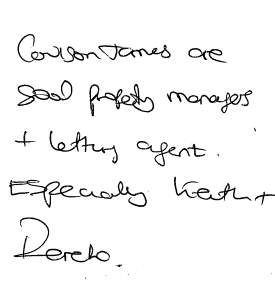 Coulson James are
good property managers
+ letting agent.
Especially Keith +
Derek.